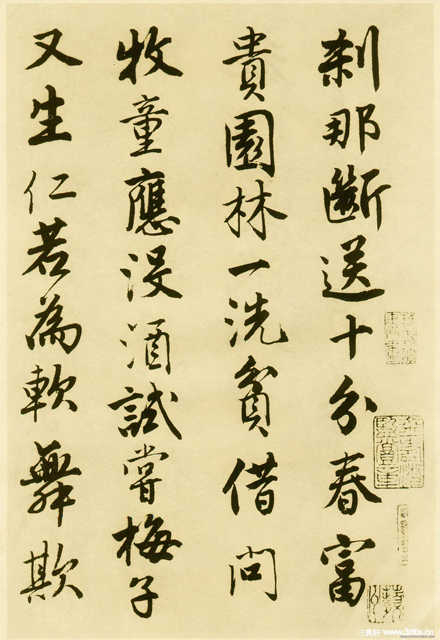 刹那斷送十分春富
貴園林一洗貧借問
牧童應沒酒試嘗梅子
又生仁若為軟舞欺
三美行 www.3mhx.cn